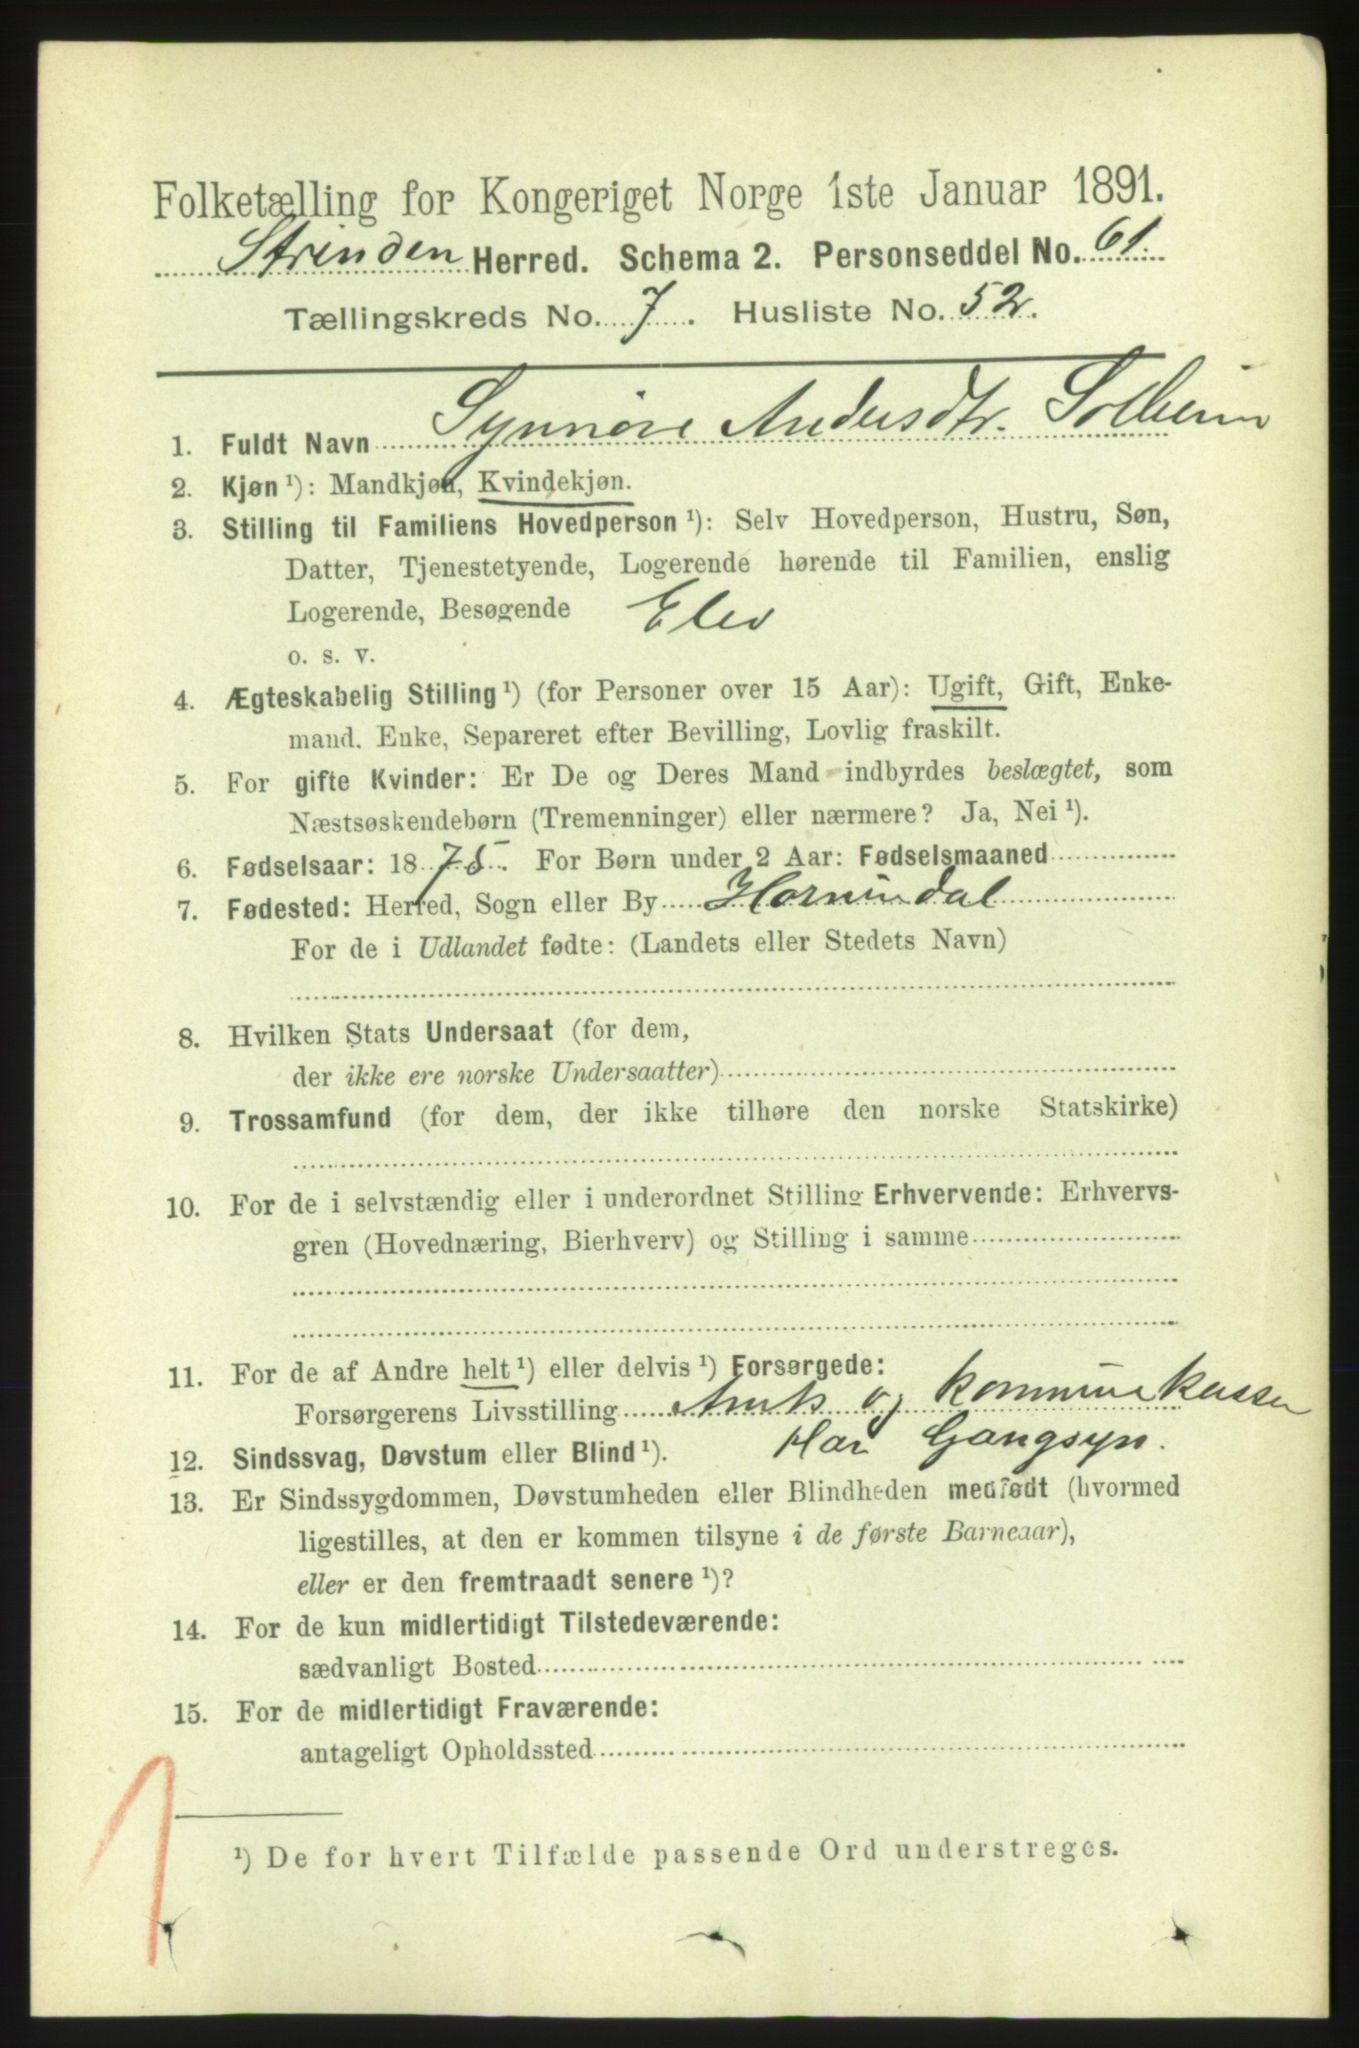 Folketælling for Kongeriget Norge 1ste Januar 1891.
Strinden Herred. Schema 2. Personseddel No. 61.
Tællingskreds No. 7. Husliste No. 52.
1. Fuldt Navn Synnøve Andersdtr. Solheim
2. Kjøn ¹): Mandkjøn, Kvindekjøn.
3. Stilling til Familiens Hovedperson ¹): Selv Hovedperson, Hustru, Søn,
Datter, Tjenestetyende, Logerende hørende til Familien, enslig
Logerende, Besøgende Elev
o. s. v.
4. Ægteskabelig Stilling ¹) (for Personer over 15 Aar): Ugift, Gift, Enke-
mand. Enke, Separeret efter Bevilling, Lovlig fraskilt.
5. For gifte Kvinder: Er De og Deres Mand indbyrdes beslægtet, som
Næstsøskendebørn (Tremenninger) eller nærmere? Ja, Nei ¹).
6. Fødselsaar: 1875. For Børn under 2 Aar: Fødselsmaaned
7. Fødested: Herred, Sogn eller By Hornindal
For de i Udlandet fødte: (Landets eller Stedets Navn)
8. Hvilken Stats Undersaat (for dem,
der ikke ere norske Undersaatter)
9. Trossamfund (for dem, der ikke tilhøre den norske Statskirke)
10. For de i selvstændig eller i underordnet Stilling Erhvervende: Erhvervs-
gren (Hovednæring, Bierhverv) og Stilling i samme
11. For de af Andre helt ¹) eller delvis ¹) Forsørgede:
Forsørgerens Livsstilling Amts og kommunekasser
12. Sindssvag, Døvstum eller Blind ¹). Har Gangsyn.
13. Er Sindssygdommen, Døvstumheden eller Blindheden medfødt (hvormed
ligestilles, at den er kommen tilsyne i de første Barneaar),
eller er den fremtraadt senere ¹)?
14. For de kun midlertidigt Tilstedeværende:
sædvanligt Bosted
15. For de midlertidigt Fraværende:
antageligt Opholdssted
1
¹) De for hvert Tilfælde passende Ord understreges.